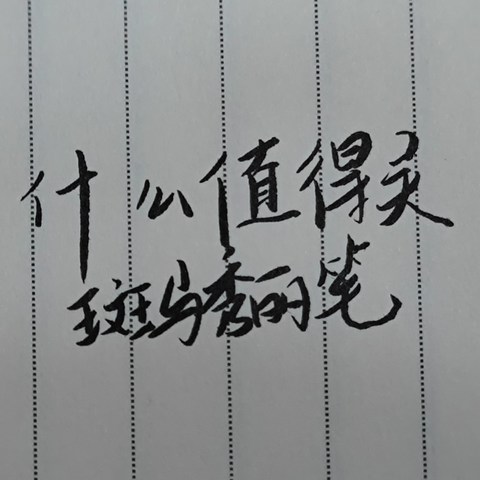 什么值得买
斑马秀丽笔